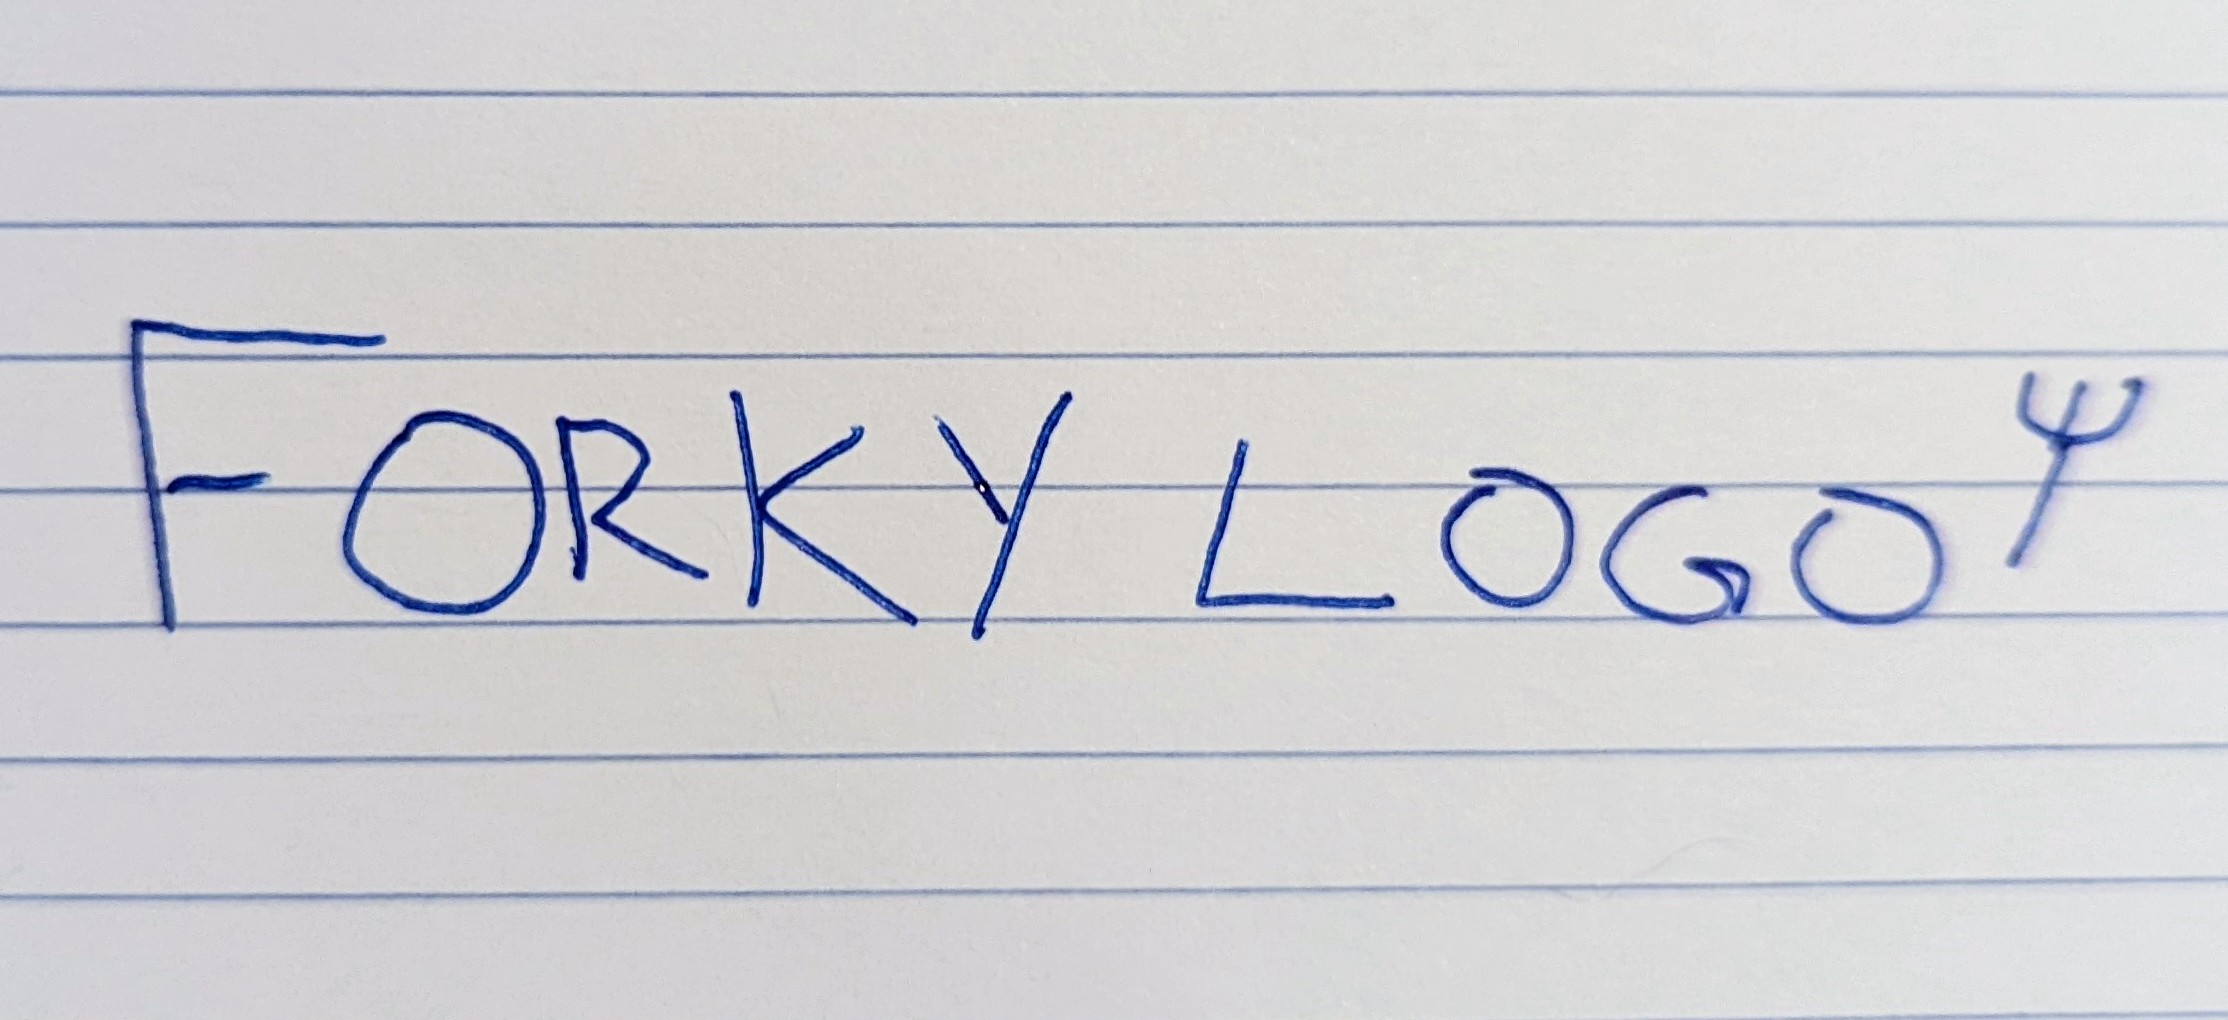 FORKY LOGO Ψ